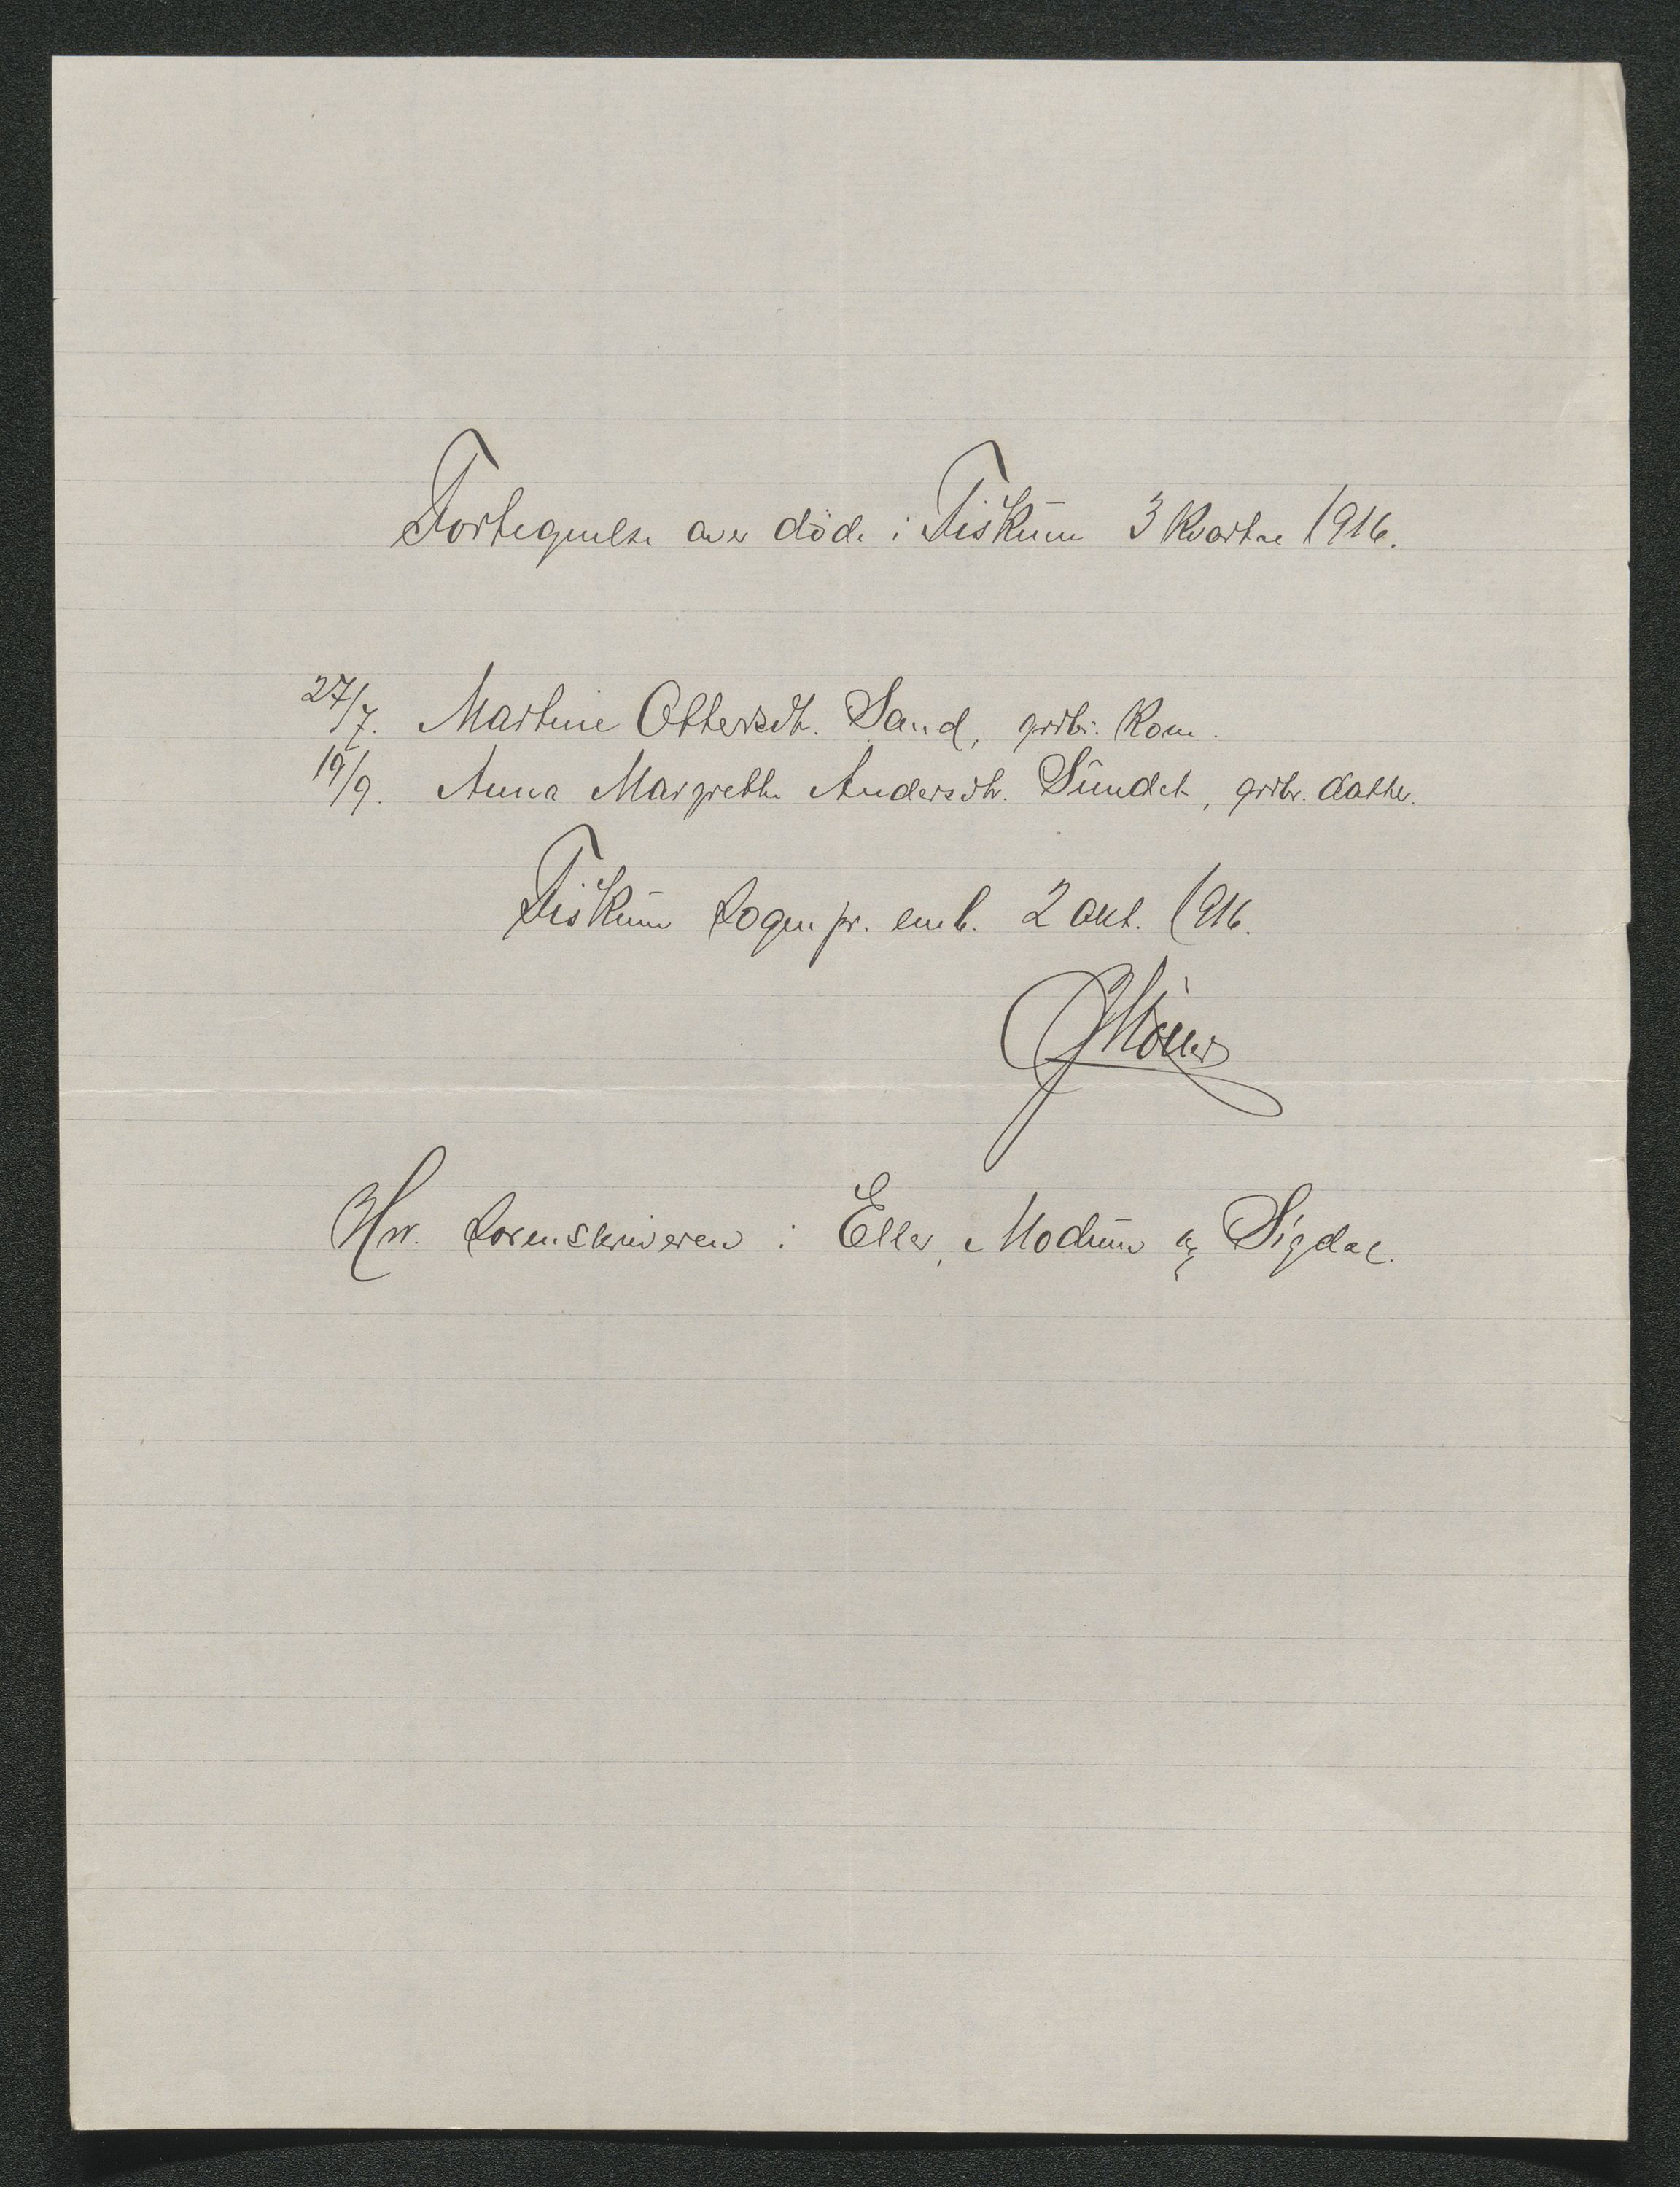 Fortegnelse over döde i Fiskum 3 Kvartal 1916.
27/7. Martine Ottersdt. Sand, grbr. Kone.
19/9. Anna Margrethe Andersdtr. Sundet, grbr. datter.
Fiskum Sogn pr. emb. 2 okt. 1916.
Hr. Sorenskriveren i Eker, Modum og Sigdal.